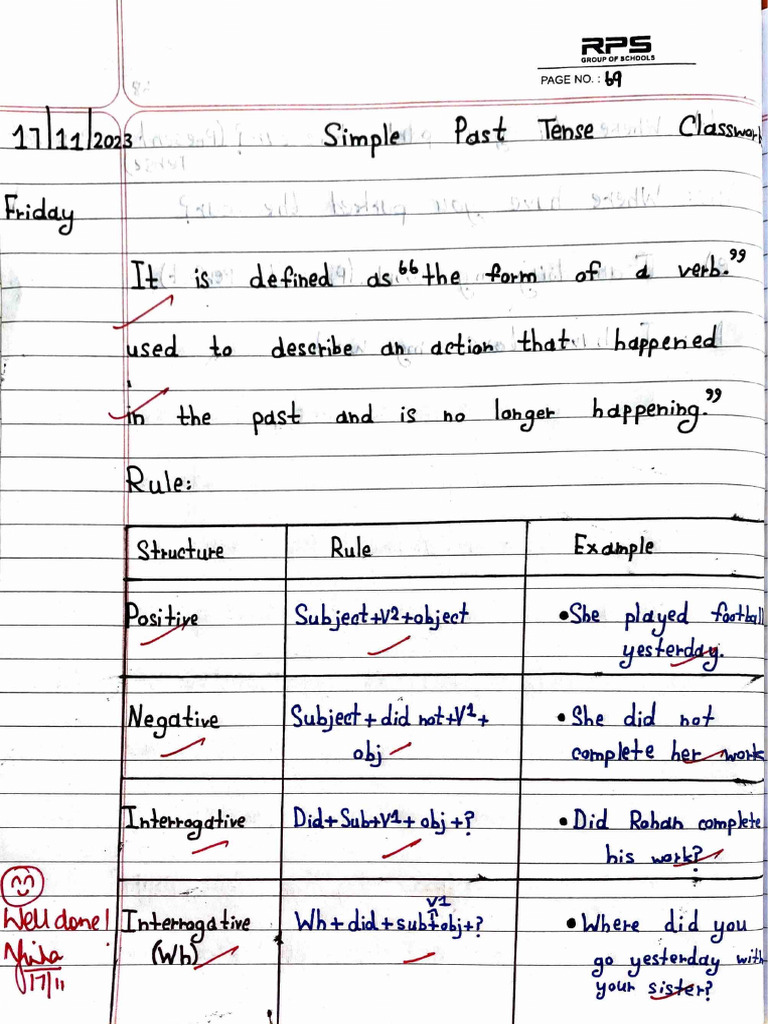 RPS
GROUP OF SCHOOLS
PAGE NO. : 69
17/11/2023 Simple Past Tense Classwork
Friday
It is defined as “the form of a verb.”
used to describe an action that happened
in the past and is no longer happening.”
Rule:
Structure Rule Example
Positive Subject+V2+object •She played football
yesterday.
Negative Subject+did not+V1+ •She did not
obj complete her work
Interrogative Did+Sub+V1+obj+? •Did Rohan complete
his work?
V1
Well done! Interrogative Wh+did+sub+obj+? •Where did you
(Wh) go yesterday with
17/11 your sister?